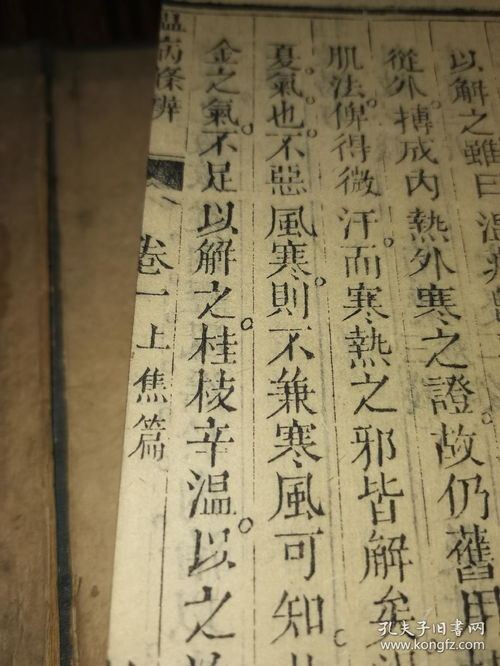 以解之雖曰溫
從外搏成內熱外寒之證故仍舊用
肌法俾得微汗而寒熱之邪皆解矣
夏氣也不惡風寒則不兼寒風可知
金之氣不足以解之桂枝辛溫以之
溫病條辨
卷一上焦篇
孔夫子旧书网